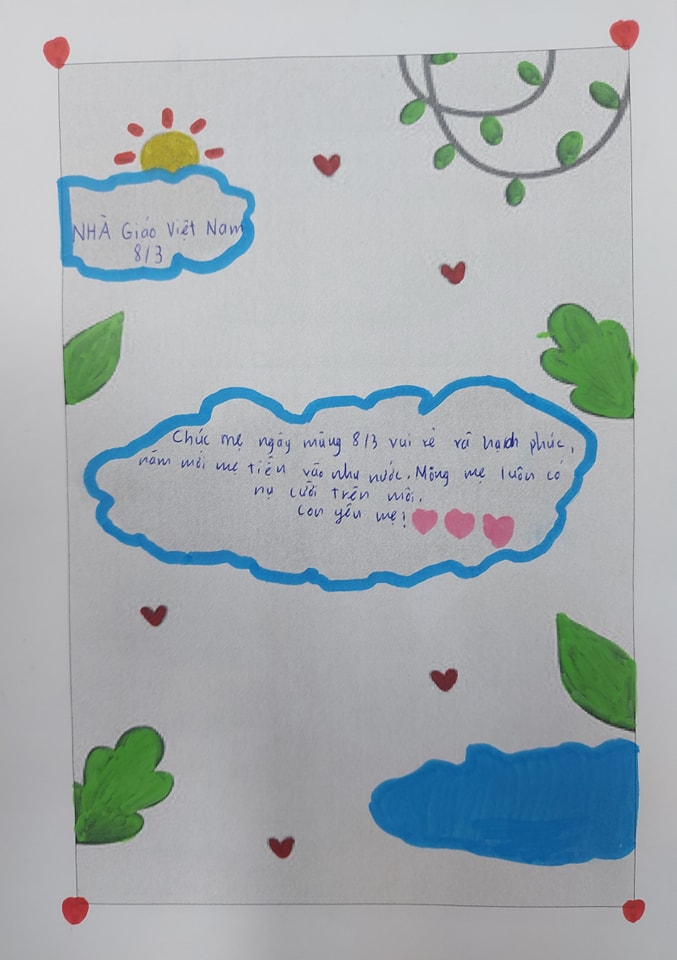 NHÀ Giáo Việt Nam
8/3
Chúc mẹ ngày mùng 8/3 vui vẻ và hạnh phúc,
năm mới mẹ tiền vào như nước. Mong mẹ luôn có
nụ cười trên môi.
Con yêu mẹ!